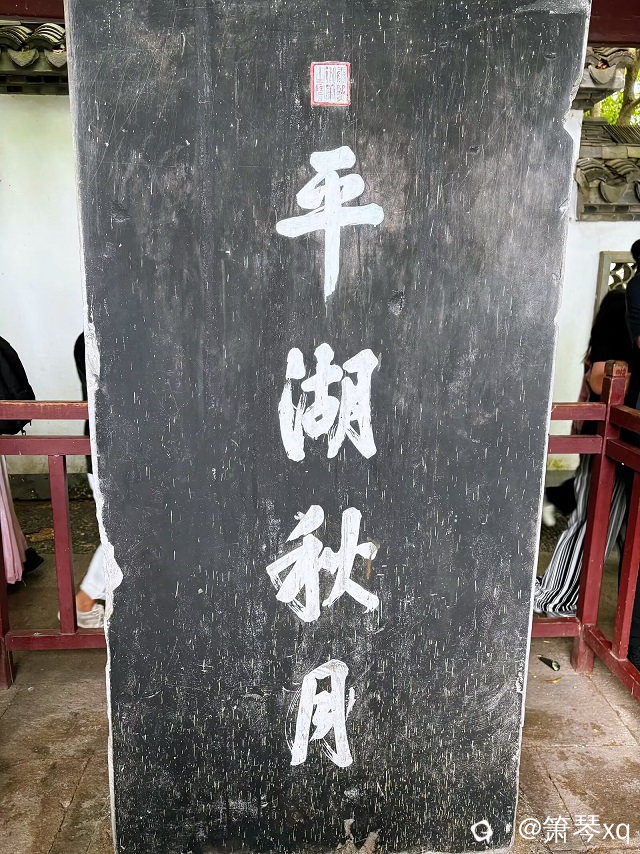 平湖秋月
@箫琴xq